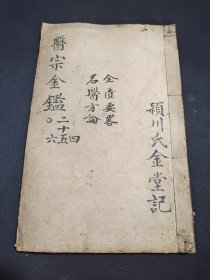 醫宗金鑑
二十四
五
〇六
金匱要畧
名醫方論
穎川氏金堂記